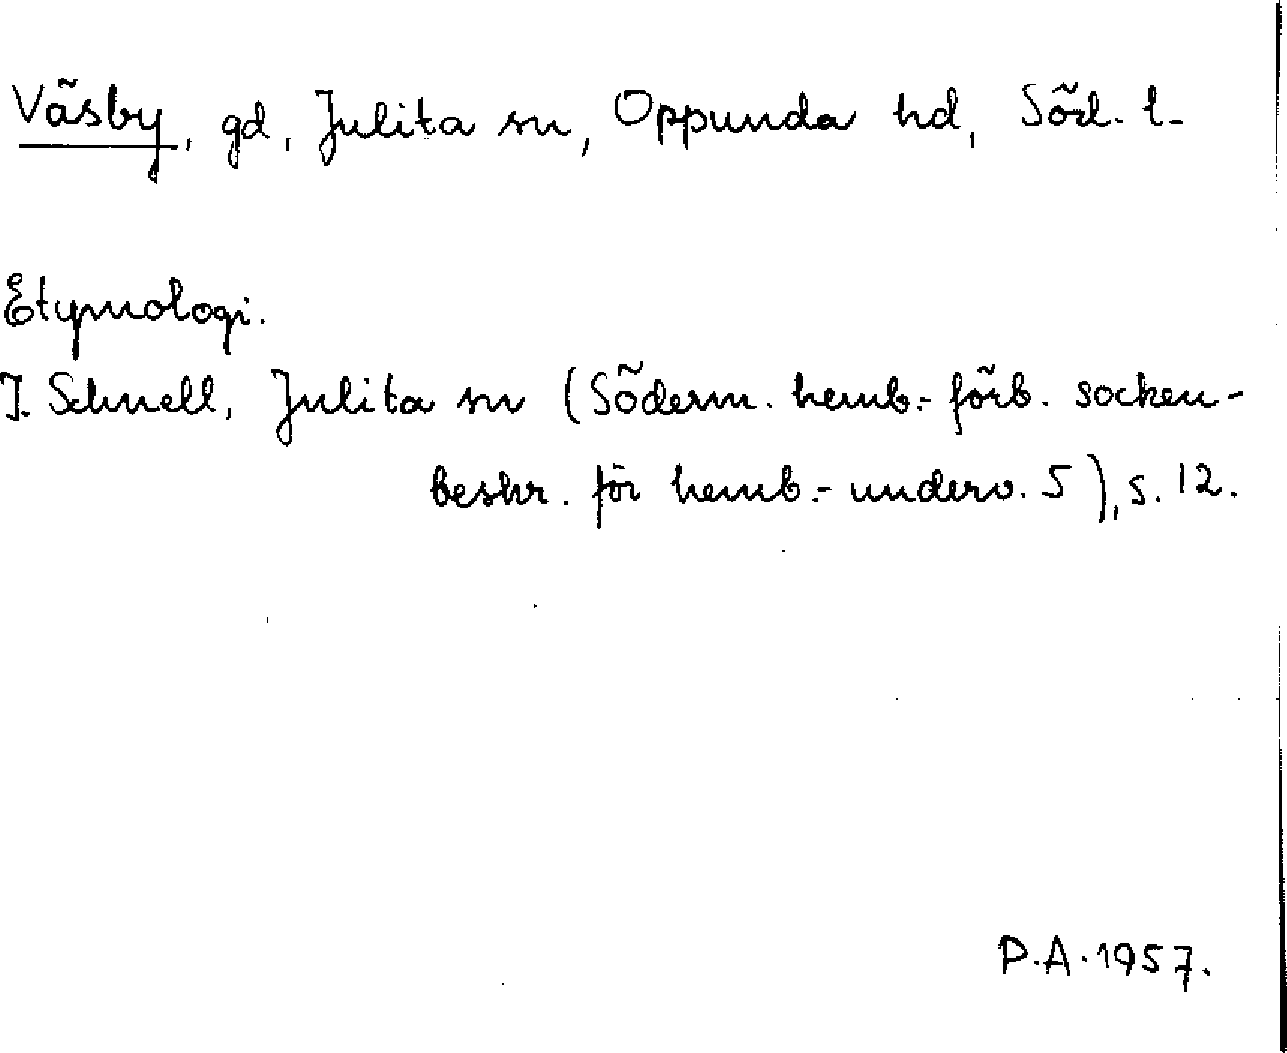 Väsby, gd, Julita sn, Oppunda hd, Söd. l.
Etymologi.
I. Schnell, Julita sn (Söderm. hemb.- förb. socken-
beskr. för hemb.- underv. 5), s. 12.
P.A. 1957.